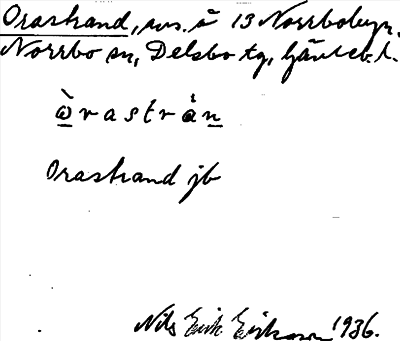 Orastrand, avs. å 13 Norrbobyn,
Norrbo sn, Delsbo tg, Gävleb. l.
ὼ̲rastrån̲
Orastrand jb
Nils Erik Eriksson 1936.